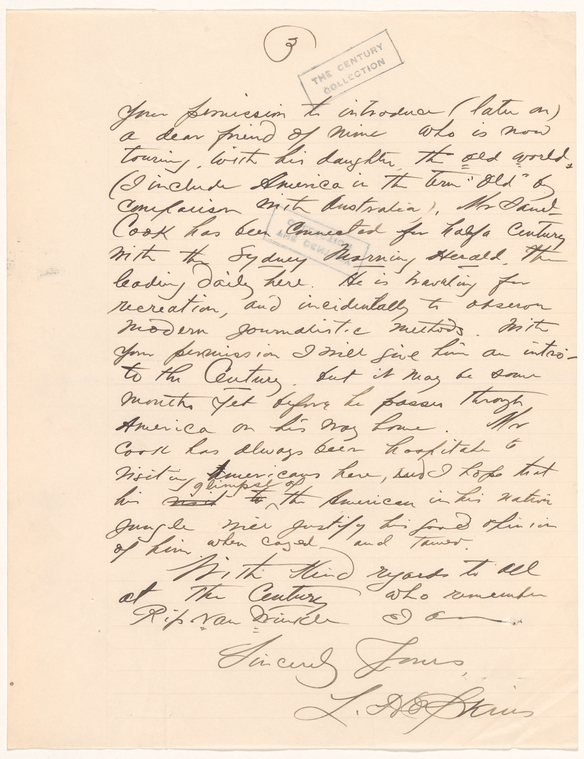 3
THE CENTURY
COLLECTION
your permission to introduce (later on)
a dear friend of mine who is now
touring, with his daughter, the old world,
(I include America in the term "Old" by
comparison with Australia). Mr Saml
Cook has been connected for half a Century
with the Sydney Morning Herald, the
leading daily here. He is traveling for
recreation, and incidentally to observe
modern journalistic methods. With
your permission I will give him an intro-
to the Century. But it may be some
months yet before he passes through
America on his way home. Mr
Cook has always been hospitable to
visiting Americans here, and I hope that
glimpse of
his visit to the American in his native
jungle will justify his good opinion
of him when caged and tamed.
With kind regards to all
at the Century who remember
Rip Van Winkle I am
Sincerely Yours,
L. Hopkins